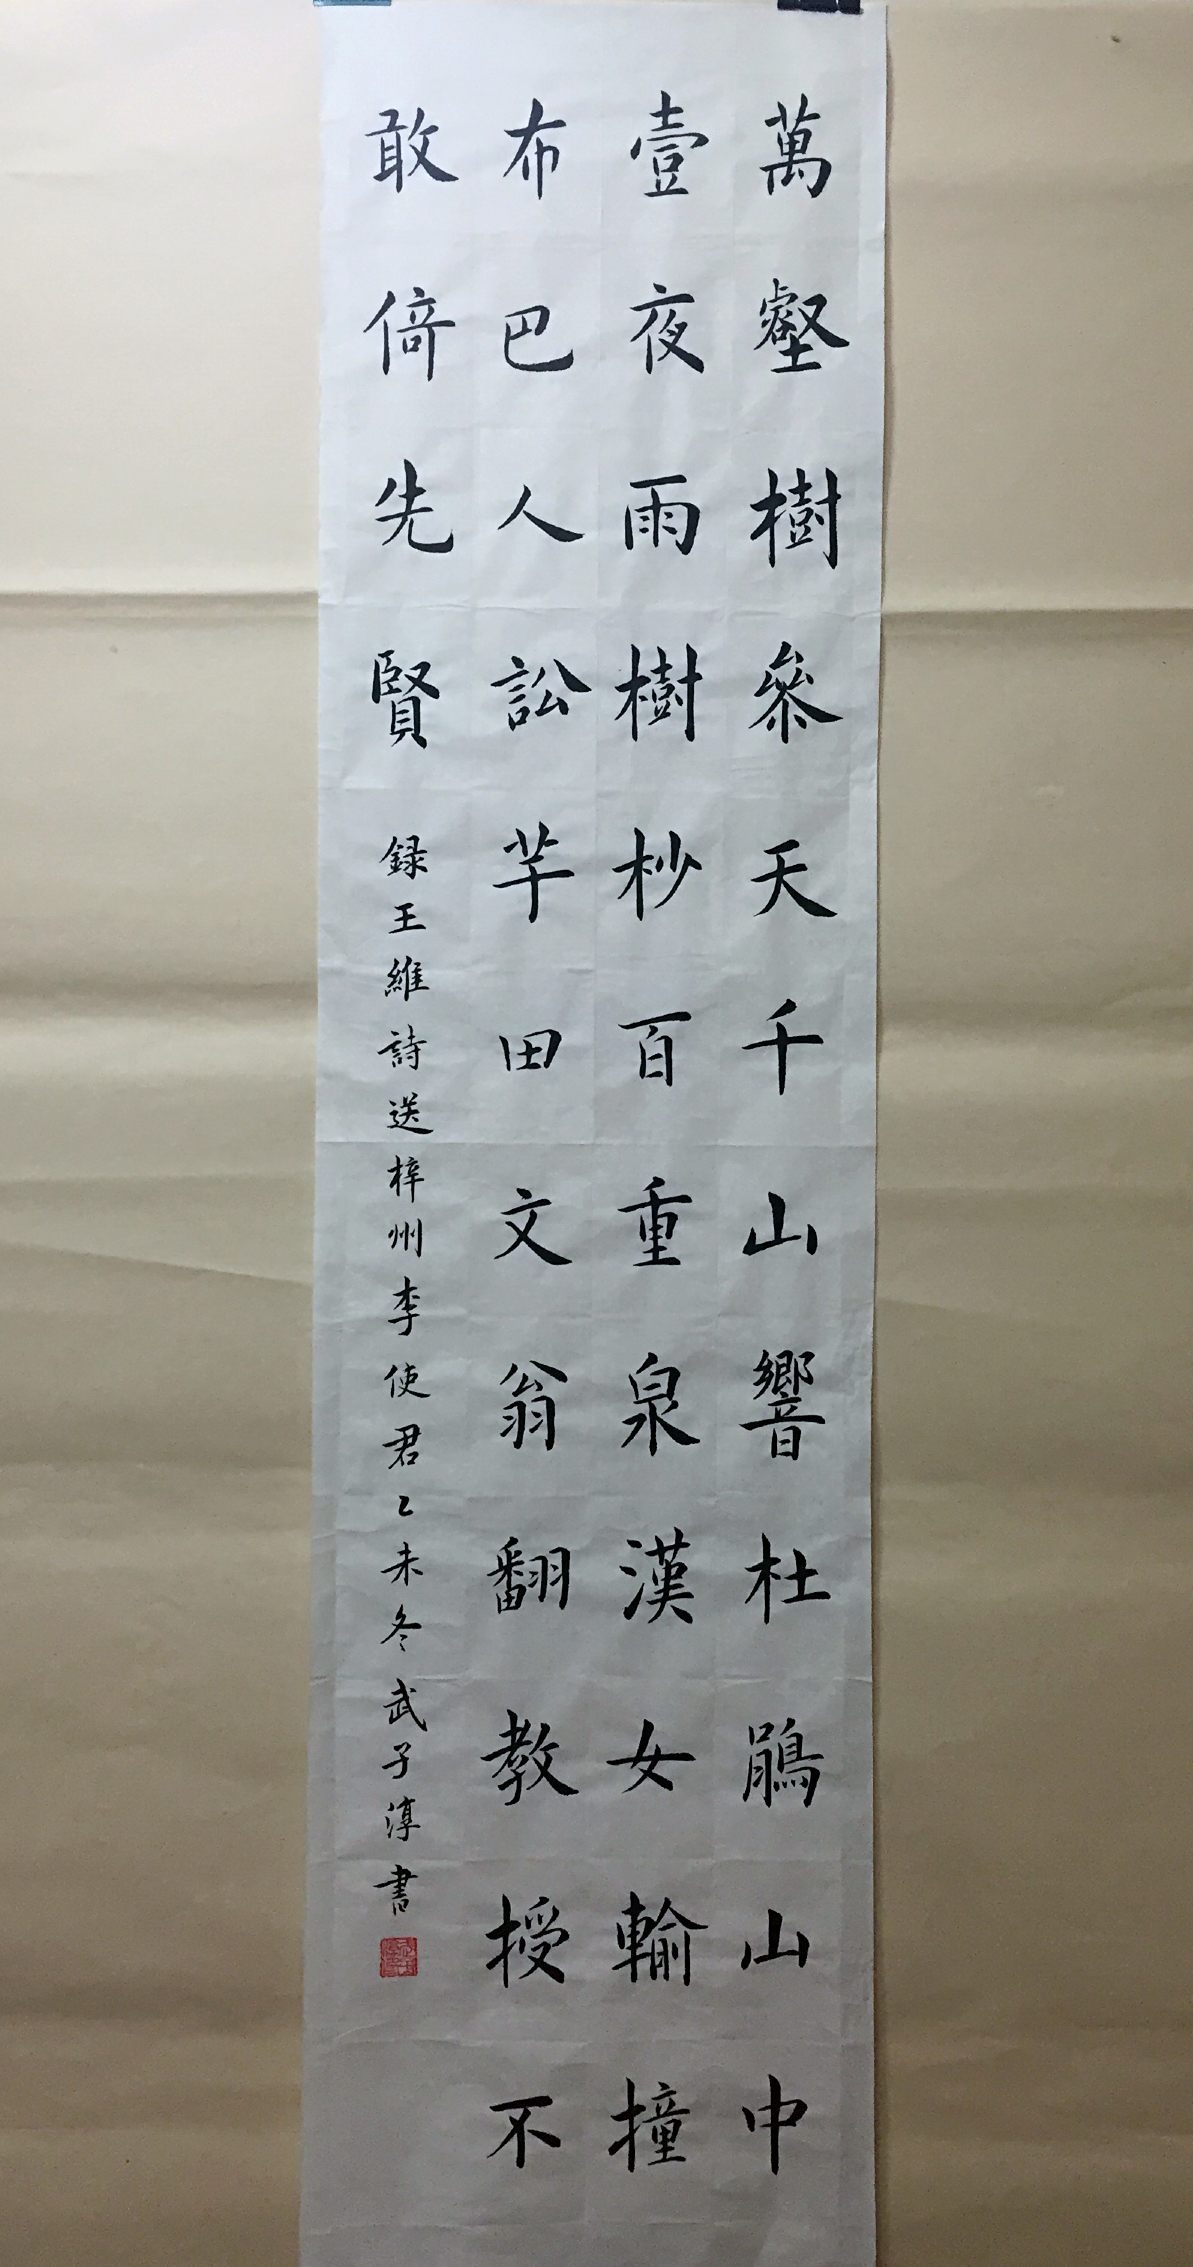 萬壑樹參天千山響杜鵑山中
壹夜雨樹杪百重泉漢女輸撞
布巴人訟芋田文翁翻教授不
敢倚先賢
録王維詩送梓州李使君乙未冬武子淳書